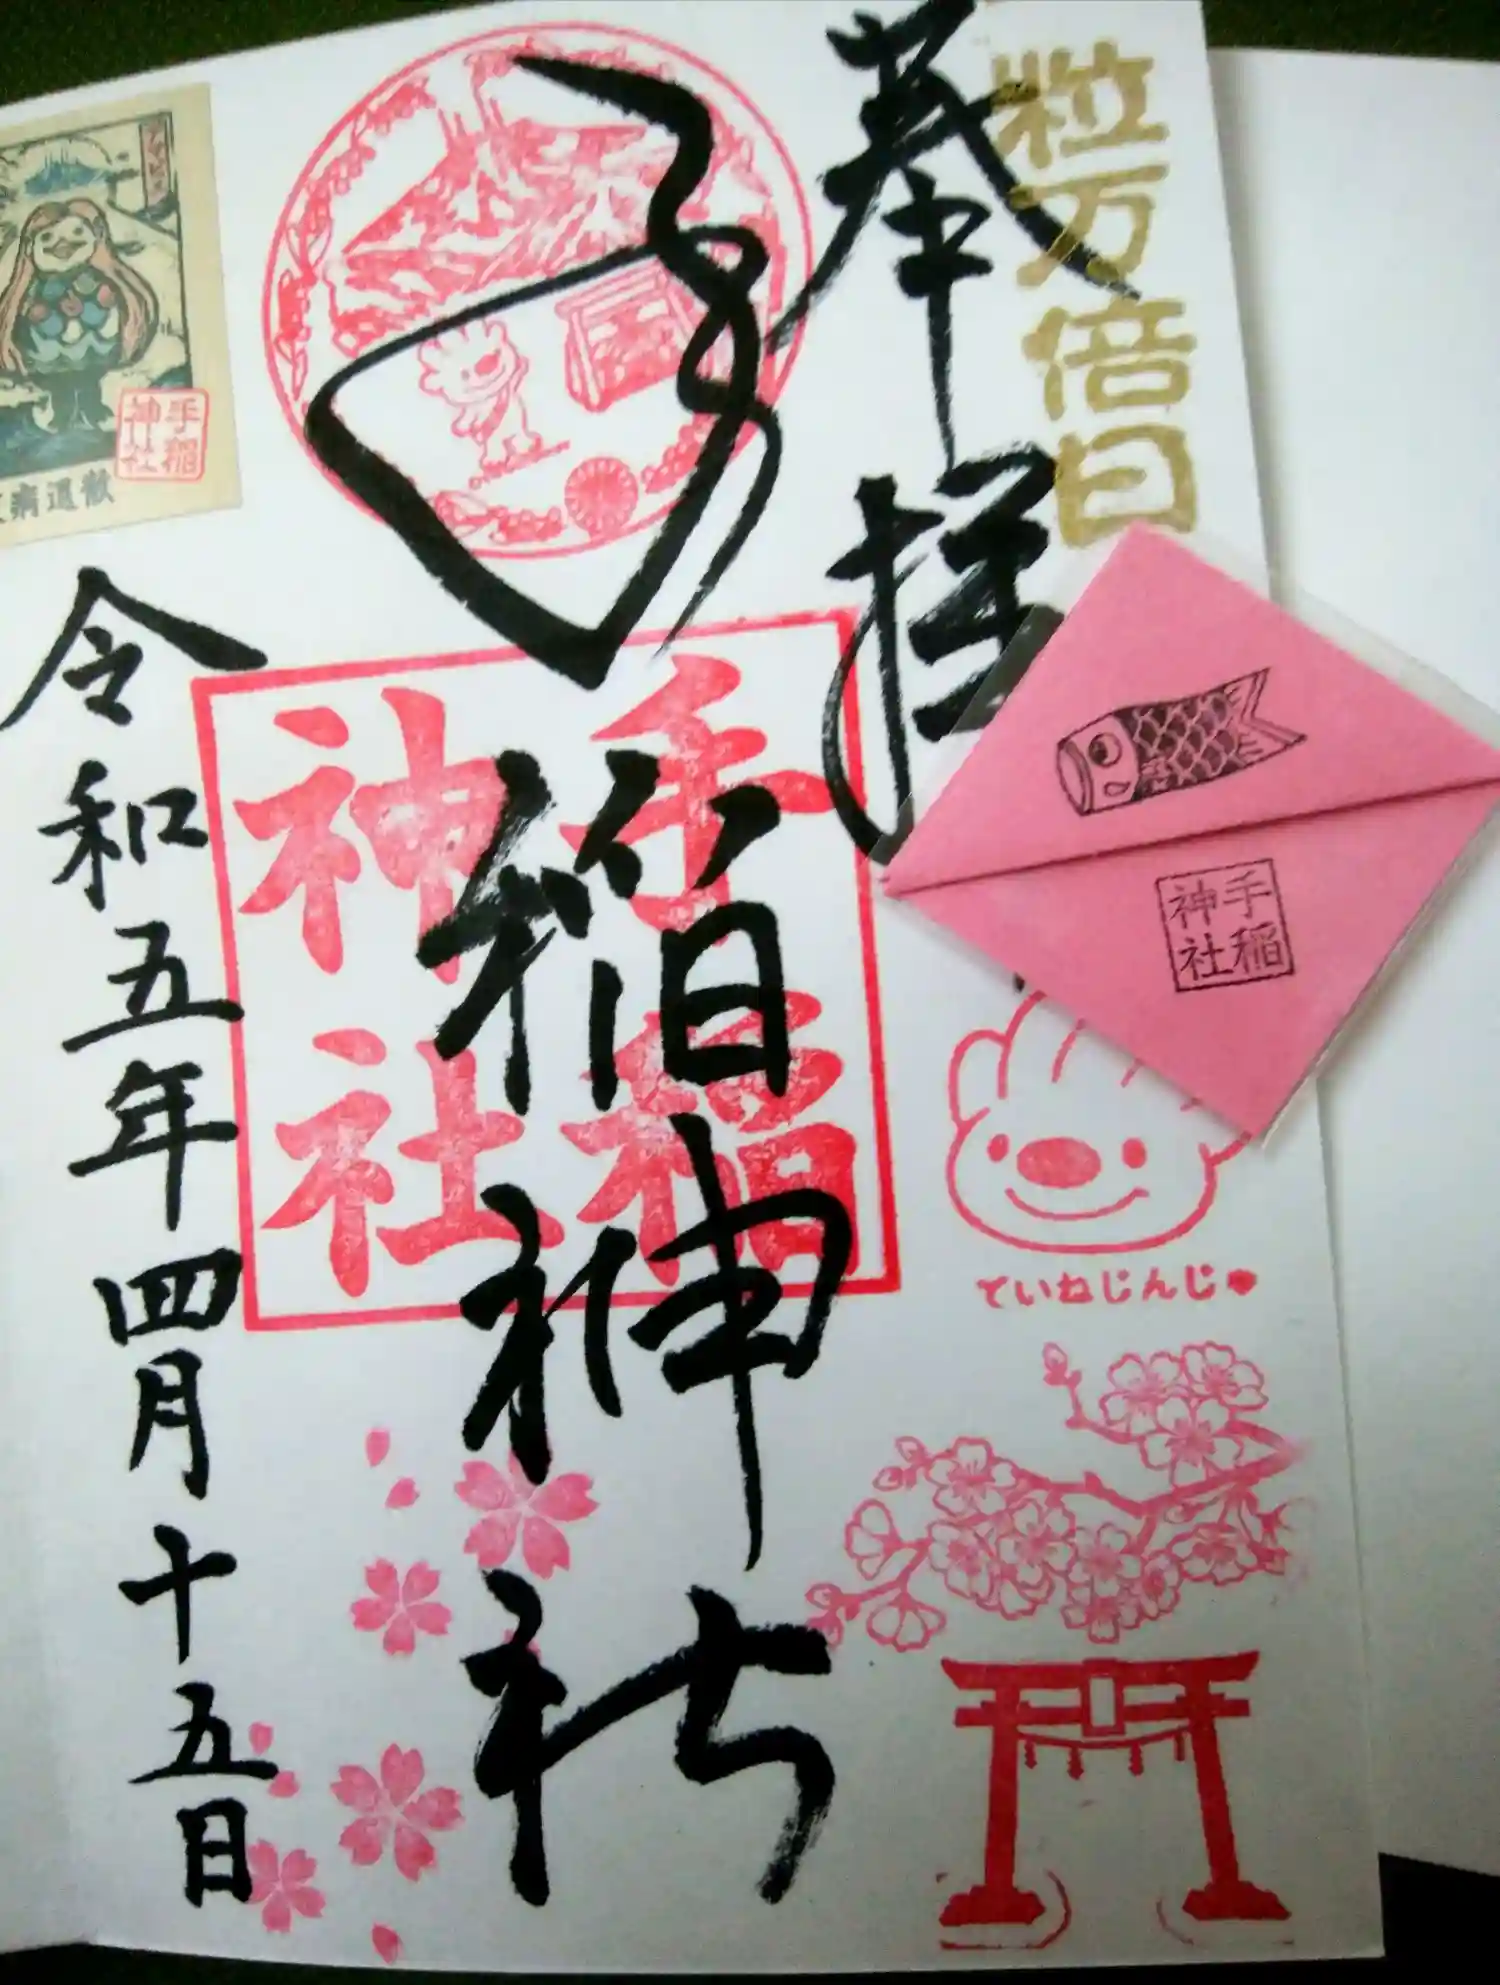 粒万倍日
奉拝
手稲神社
手稲
神社
令和五年四月十五日
手稲
神社
ていねじんじゃ
手稲
神社
病退散